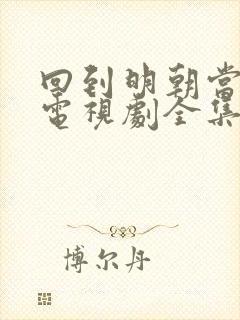 回到明朝当
電視劇全集
博尔丹